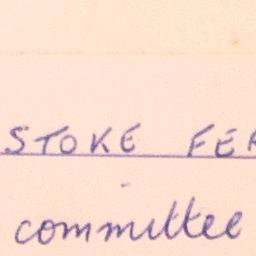 STOKE FER
committee